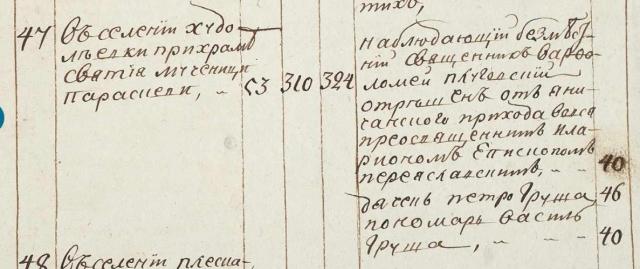 47 Въ селенїи худо-
лѣевки при храмѣ
святїя мученици
Параскеви, „ 53 310 324
тихо,
наблюдающїй безмѣст-
нїй священникъ Варѳо-
ломей
отрѣшенъ отъ яни-
чанского прихода
преосвященнимъ Ила-
рїономъ Епископомъ
переяславскимъ, „ „ 40
дячекъ петро Груша 46
пономарь василь
Груша, „ „ „ 40
48 Въ селенїи плесна-